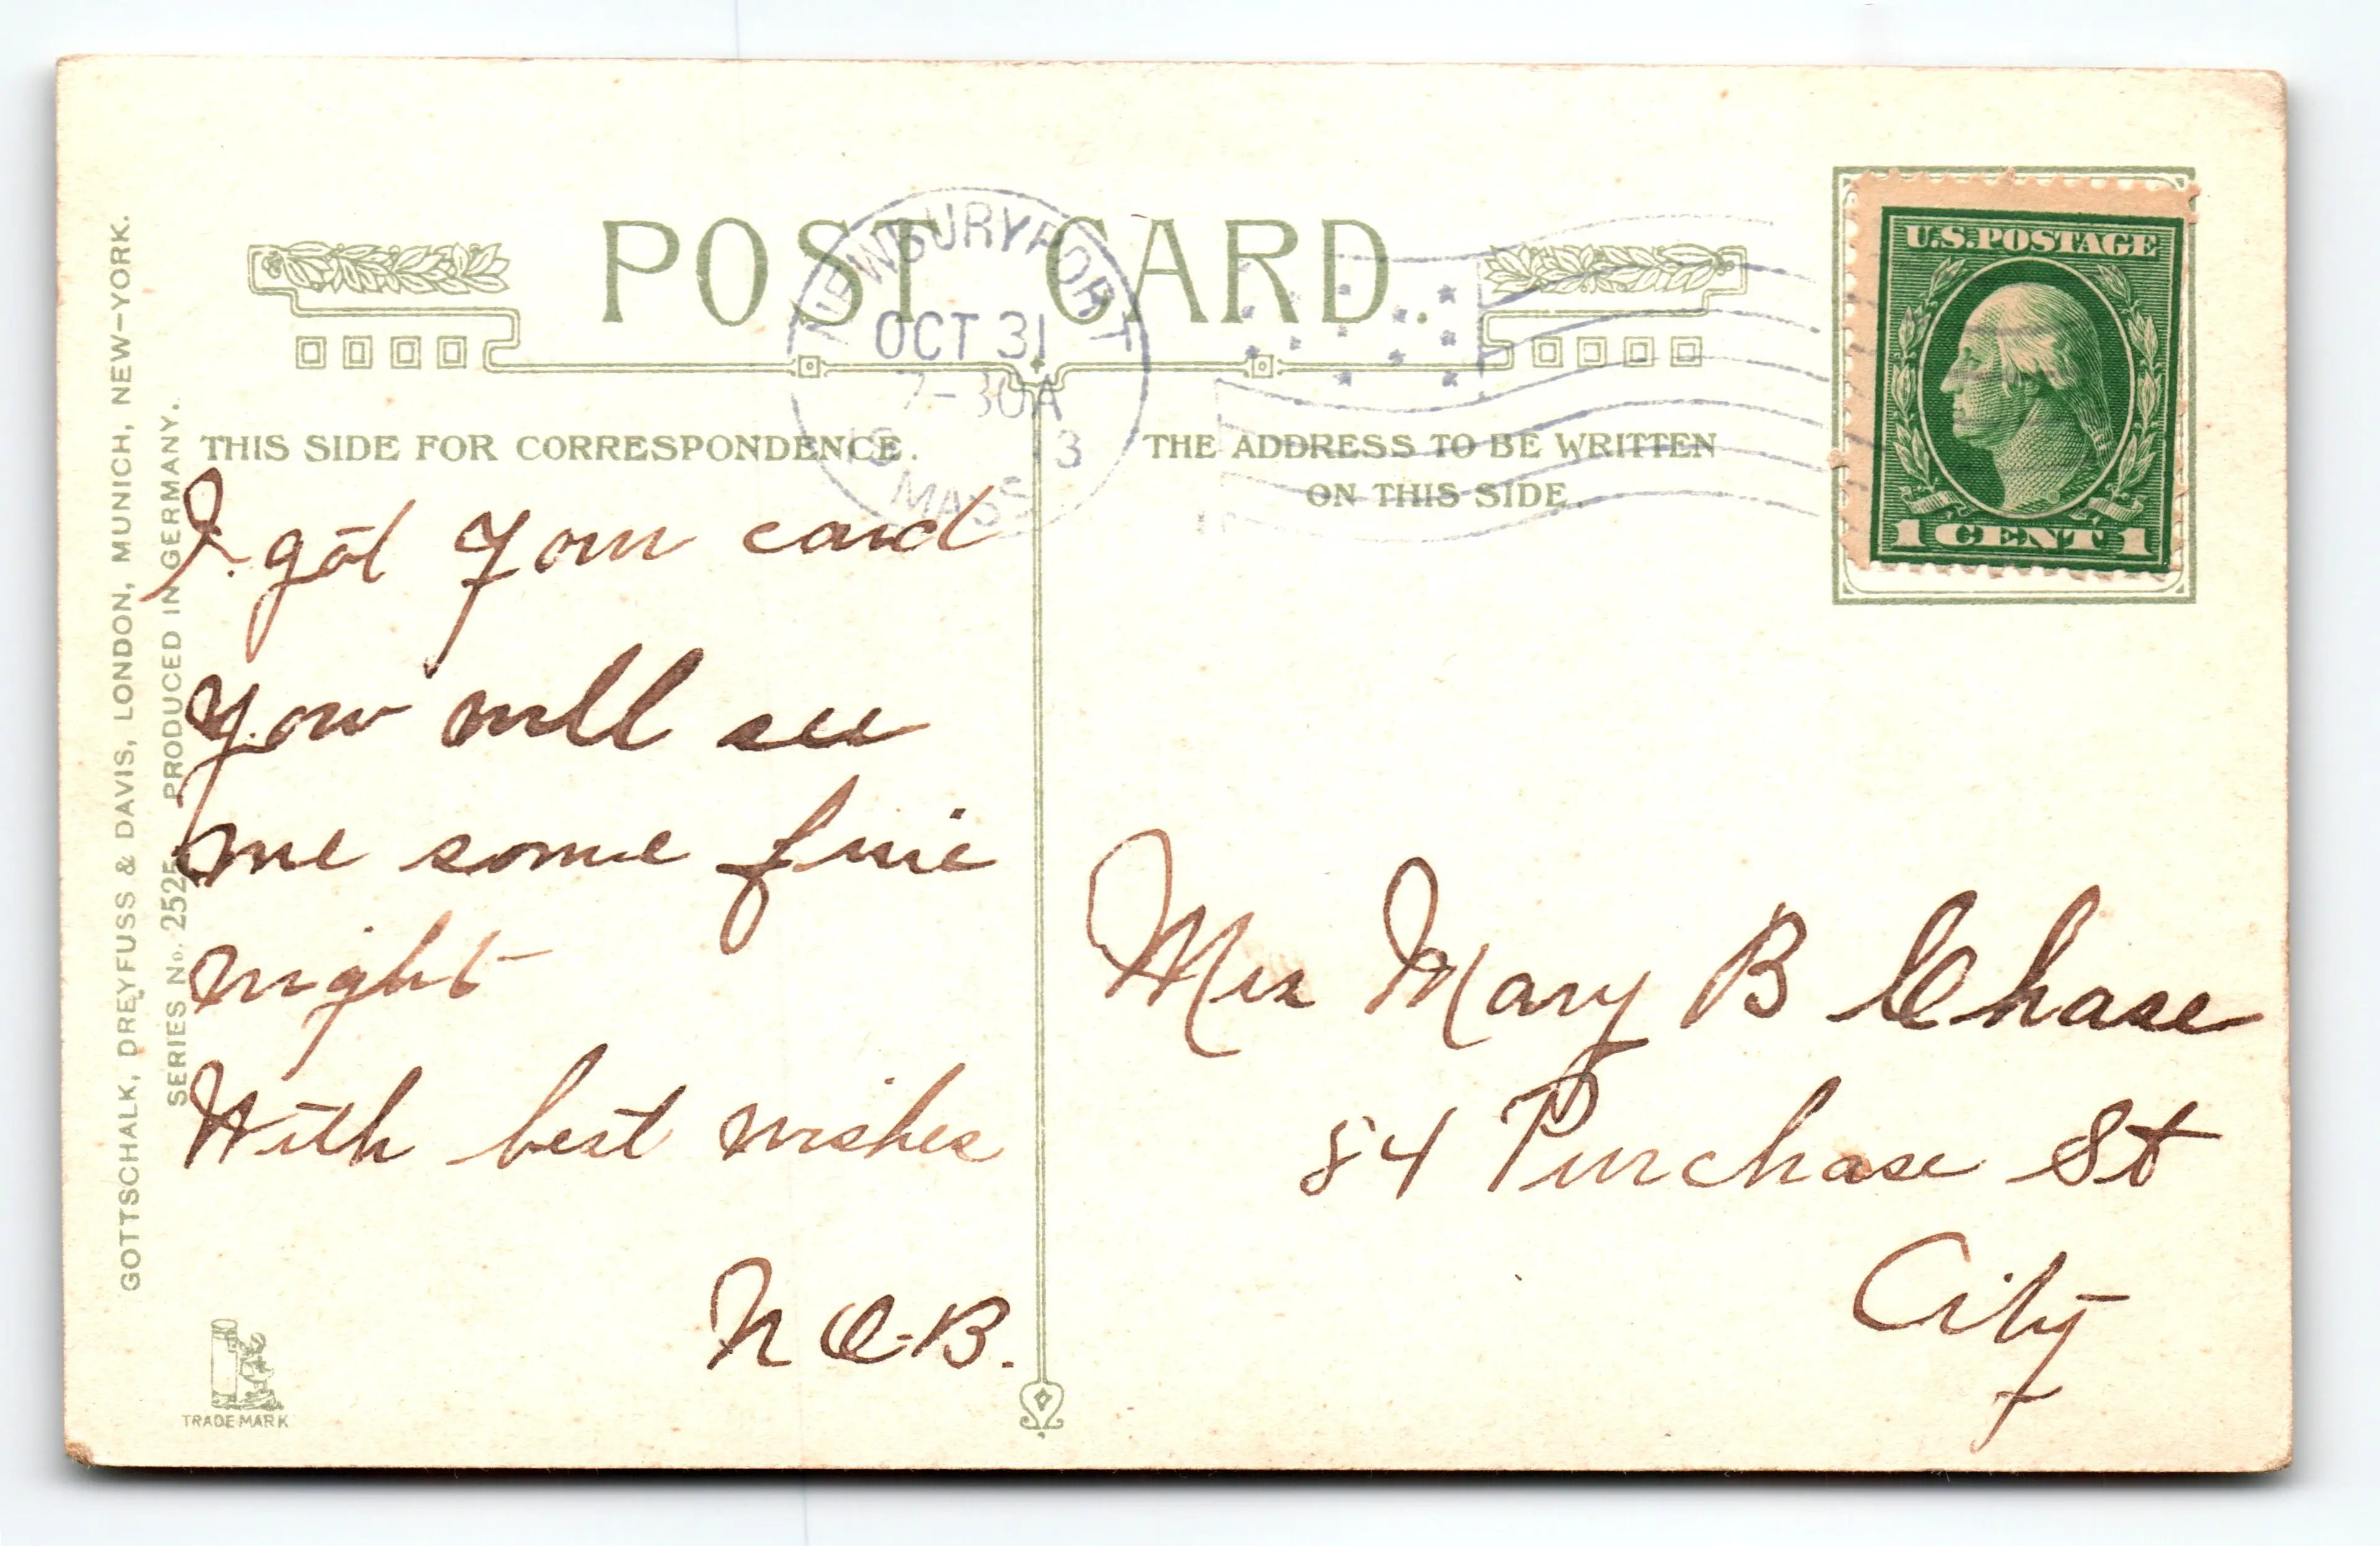 POST CARD.
NEWBURYPORT
OCT 31
7-30A
1913
MASS
U.S. POSTAGE
1 CENT 1
THIS SIDE FOR CORRESPONDENCE.
THE ADDRESS TO BE WRITTEN
ON THIS SIDE.
I got your card
you will see
me some fine
night
With best wishes
N C-B.
Mrs Mary B Chase
84 Purchase St
City
GOTTSCHALK, DREYFUSS & DAVIS, LONDON, MUNICH, NEW-YORK.
SERIES No. 2525 PRODUCED IN GERMANY.
TRADE MARK